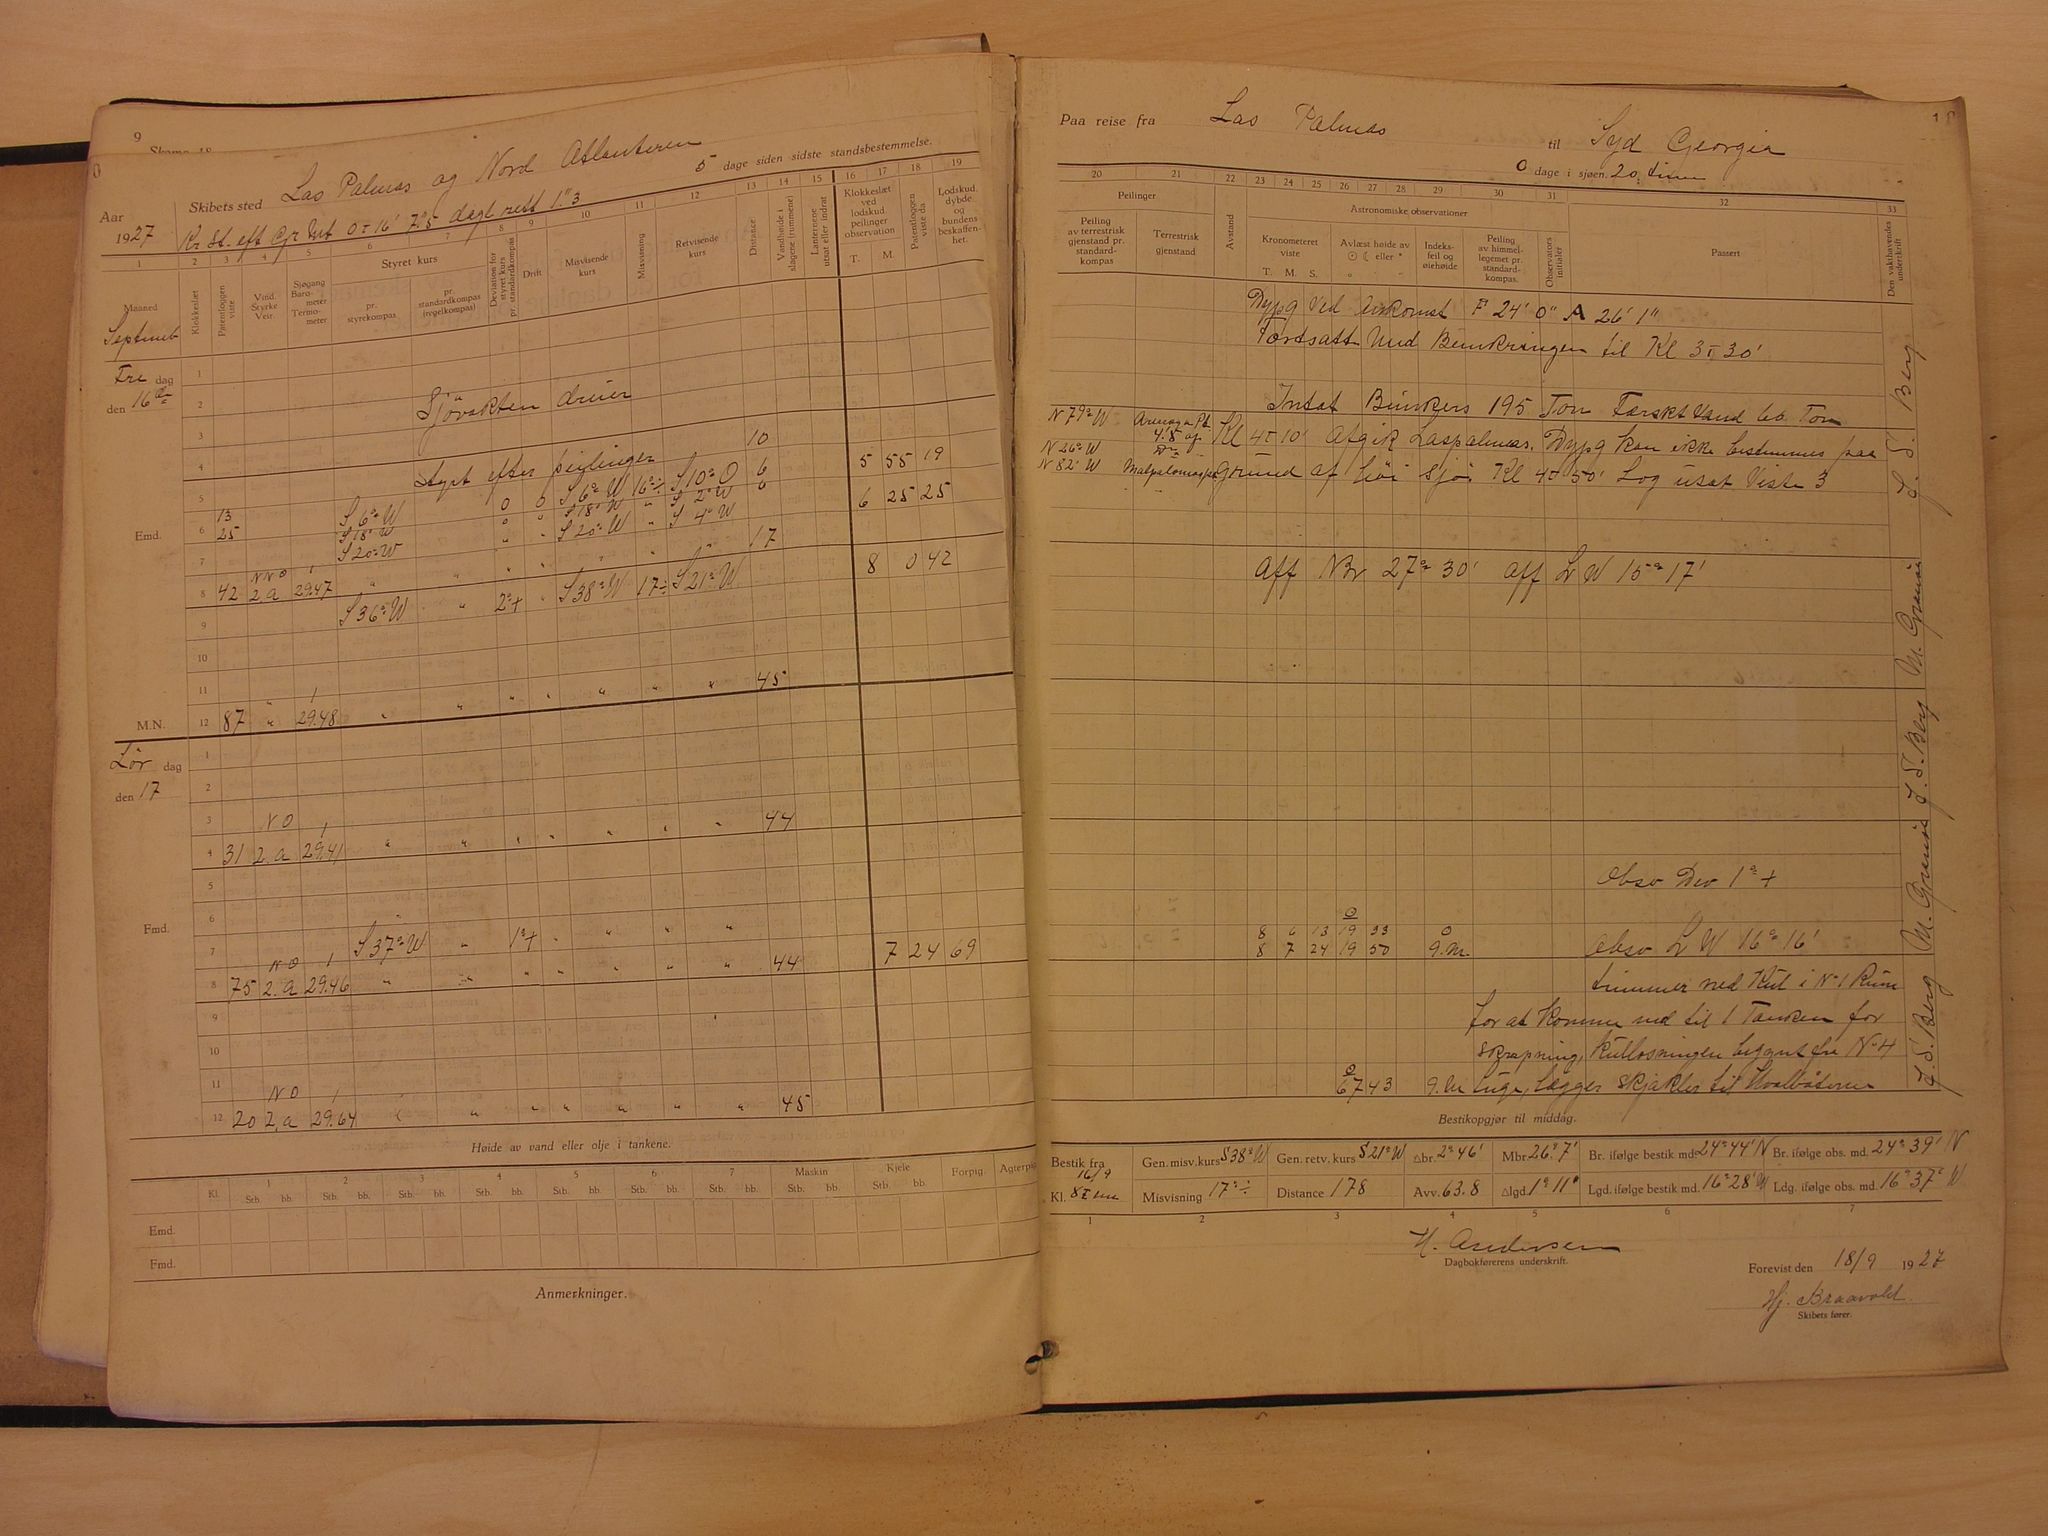 9
Aar
1927
Skibets sted Las Palmas og Nord Atlanteren 5 dage siden sidste standsbestemmelse.
Kr St. eft Gr Mt 0 T 16' 7.s5 dagl rett 1.s3
1 2 3 4 5 6 7 8 9 10 11 12 13 14 15 16 17 18 19
Maaned
Septmb
Klokkeslæt
Patentloggen viste
Vind. Styrke Veir.
Sjøgang Barometer Termometer
Styret kurs
pr. styrekompas
pr. standardkompas (regelkompas)
Deviation for styret kurs pr. standardkompas
Drift
Misvisende kurs
Misvisning
Retvisende kurs
Distance
Vandhøide i slagene (rummene)
Lanternene utsat eller indrat
Klokkeslæt ved lodskud peilinger observation
T. M.
Patentloggen viste da
Lodskud. dybde og bundens beskaffenhet.
Fre dag
den 16de
1
2
Sjövakten driver
3
10
4 Styrt efter peilinger 5 55 19
5 13 S 6° W 0 0 S 6° W 16° ÷ S 10° O 6
6 25 S 18° W " " S 18° W " S 2° W 6 6 25 25
Emd.
7 S 20° W " " S 20° W " S 4° W
NNO 1 17
8 42 2.a 29.47 " " " " " " " 8 0 42
9 S 36° W " 2° + " S 38° W 17 ÷ S 21° W
10
11
" 1 45
M.N. 12 87 " 29.48 " " " " " " "
Lør dag
den 17
1
2
3
NO 1 44
4 31 2.a 29.41 " " " " " " "
5
6
Fmd.
7 S 37° W " 1° + " " " "
NO 1 44 7 24 69
8 75 2.a 29.46 " " " " " " "
9
10
11
NO 1
12 20 2.a 29.64 " " " " " " " 45
Høide av vand eller olje i tankene.
Kl. 1 2 3 4 5 6 7 Maskin Kjele Forpig. Agterpig
Stb. bb. Stb. bb. Stb. bb. Stb. bb. Stb. bb. Stb. bb. Stb. bb. Stb. bb. Stb. bb.
Emd.
Fmd.
Anmerkninger.
Paa reise fra Las Palmas til Syd Georgia
0 dage i sjøen. 20 timer
20 21 22 23 24 25 26 27 28 29 30 31 32 33
Peilinger
Peiling av terrestrisk gjenstand pr. standard-kompas
Terrestrisk gjenstand
Avstand
Astronomiske observationer
Kronometeret viste
T. M. S.
Avlæst høide av ☉ ☾ eller *
Indeksfeil og øiehøide
Peiling av himmellegemet pr. standardkompas.
Observators initialer
Passert
Den vakthavendes underskrift
Dypg ved Ankomst F 24' 0" A 26' 1"
Fortsatt med Bunkringen til Kl 3 T 30'
Intat Bunkers 195 Ton Færskt Vand 60 Ton
N 79° W Kl 4 T 10' Afgik Laspalmas. Dypg kan ikke bestemmes paa
N 26° W
N 82° W Grund af höi Sjö. Kl 4 T 50' Log utsat Viste 3
Aff NBr 27° 30' Aff L W 15° 17'
J. S. Berg
Obsv Dev 1° +
☉
8 6 13 19 33 0
8 7 24 19 50 9.m Obsv L W 16° 16'
trimmer ned Kul i No 1 Rum
for at komme ned til 1 Tanken for
skrapning, Kullosningen begynt fra No 4
☉
67 43 9.m luge, lægger skjækler til Hvalbåtene
J. S. Berg
J. S. Berg
Bestikopgjør til middag.
Bestik fra 16/9 Gen. misv. kurs S 38° W Gen. retv. kurs S 21° W △br. 2° 46' Mbr. 26° 7' Br. ifølge bestik md. 24° 44' N Br. ifølge obs. md. 24° 39' N
Kl. 8 T em Misvisning 17° ÷ Distance 178 Avv. 63.8 △lgd. 1° 11' Lgd. ifølge bestik md. 16° 28' W Ldg. ifølge obs. md. 16° 37' W
1 2 3 4 5 6 7
H. Andersen
Dagbokførerens underskrift.
Forevist den 18/9 1927
Hj. Braavold
Skibets fører.